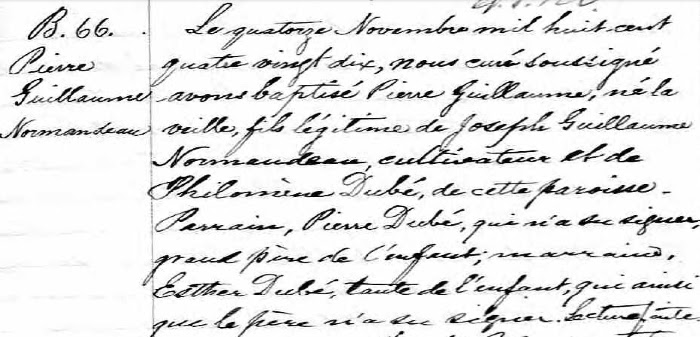 B. 66.
Pierre
Guillaume
Normandeau
Le quatorze Novembre mil huit-cent
quatre vingt dix, nous curé soussigné
avons baptisé Pierre Guillaume, né la
veille, fils légitime de Joseph Guillaume
Normandeau, cultivateur et de
Philomène Dubé, de cette paroisse.
Parrain, Pierre Dubé, qui n'a su signer,
grand père de l'enfant; marraine,
Esther Dubé, tante de l'enfant, qui ainsi
que le père n'a su signer. Lecture faite.